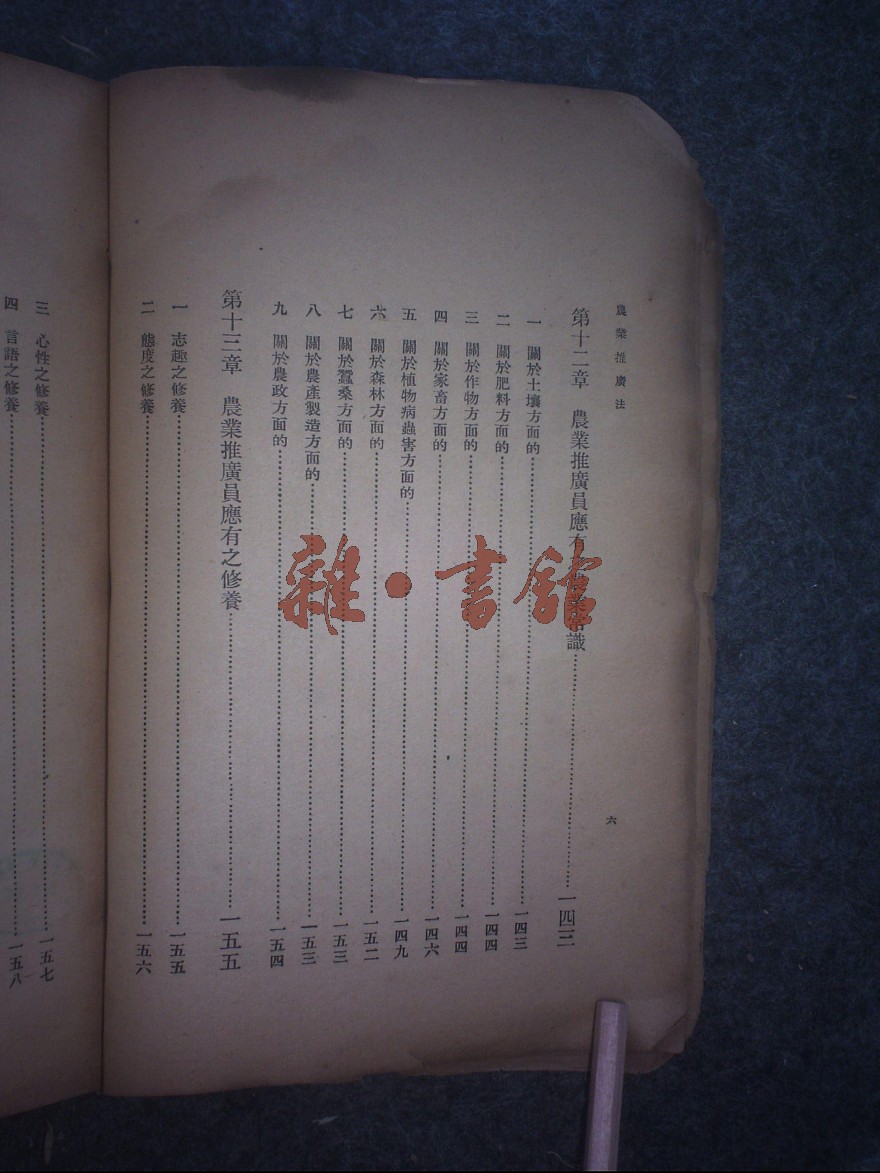 農業推廣法
六
第十二章　農業推廣員應有之農業常識……一四三
一　關於土壤方面的……一四三
二　關於肥料方面的……一四四
三　關於作物方面的……一四四
四　關於家畜方面的……一四六
五　關於植物病蟲害方面的……一四九
六　關於森林方面的……一五二
七　關於蠶桑方面的……一五三
八　關於農產製造方面的……一五三
九　關於農政方面的……一五四
第十三章　農業推廣員應有之修養……一五五
一　志趣之修養……一五五
二　態度之修養……一五六
三　心性之修養……一五七
四　言語之修養……一五八
雜·書館